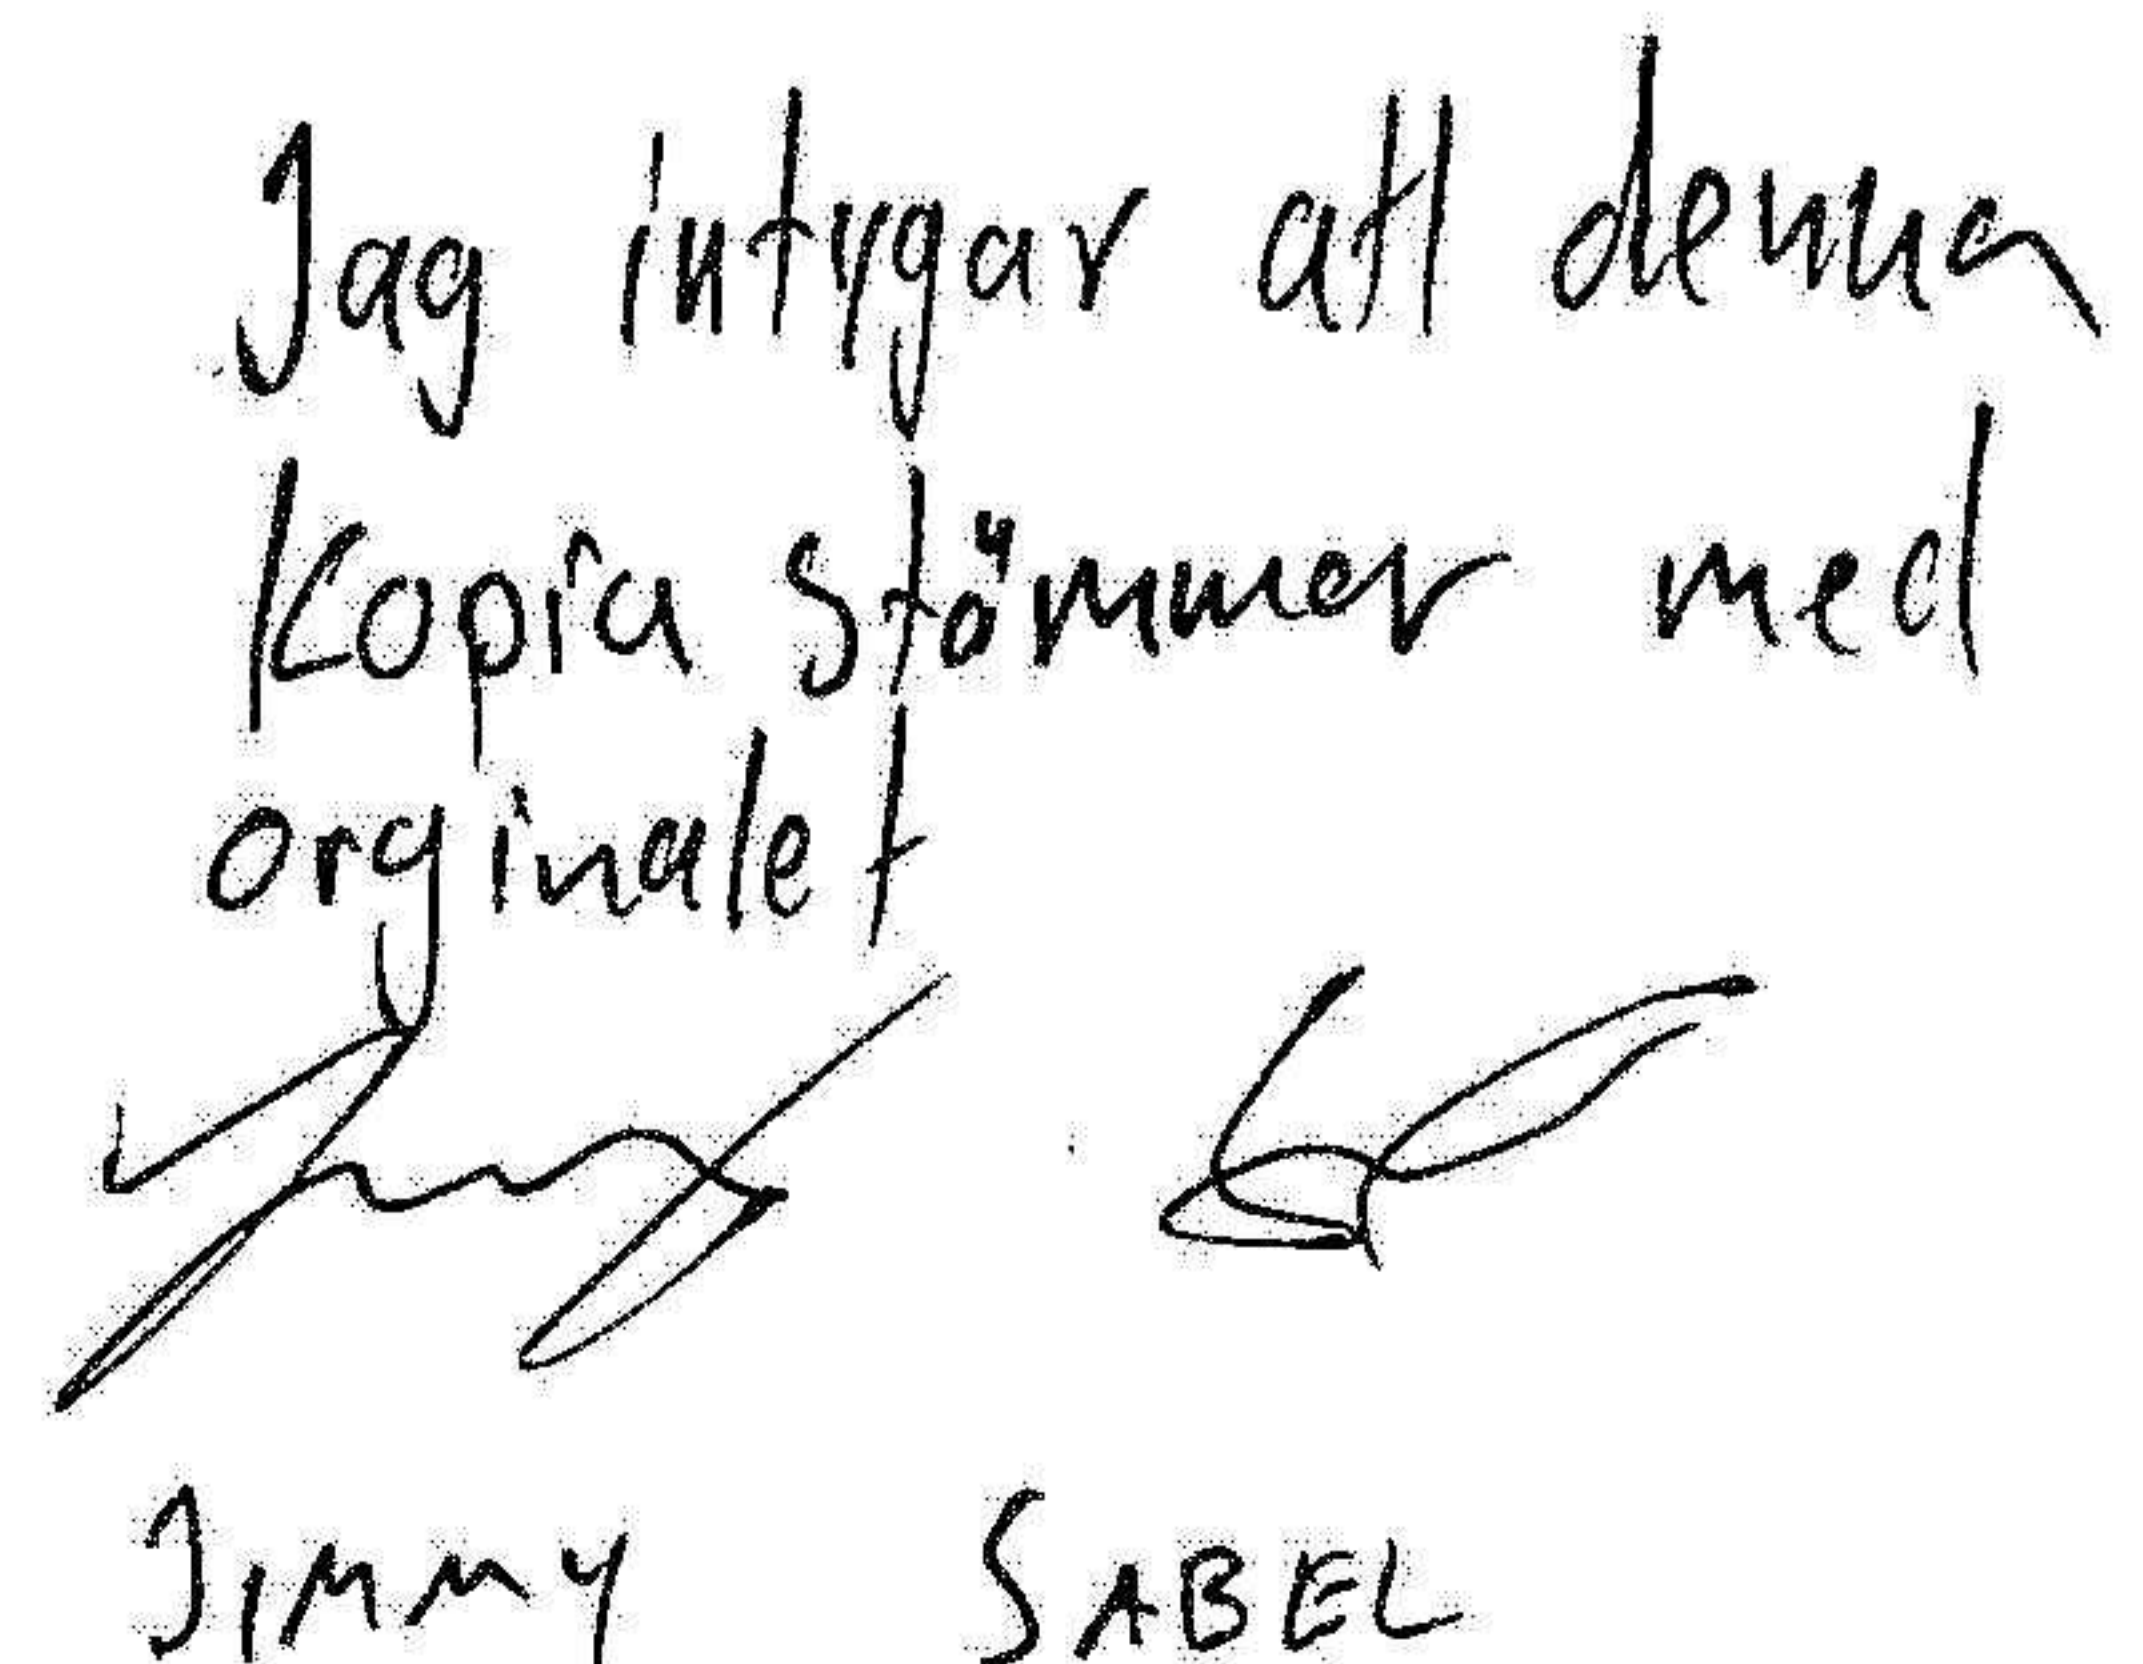 Jag intygar att denna
Kopia stämmer med
orginalet
JIMMY SABEL